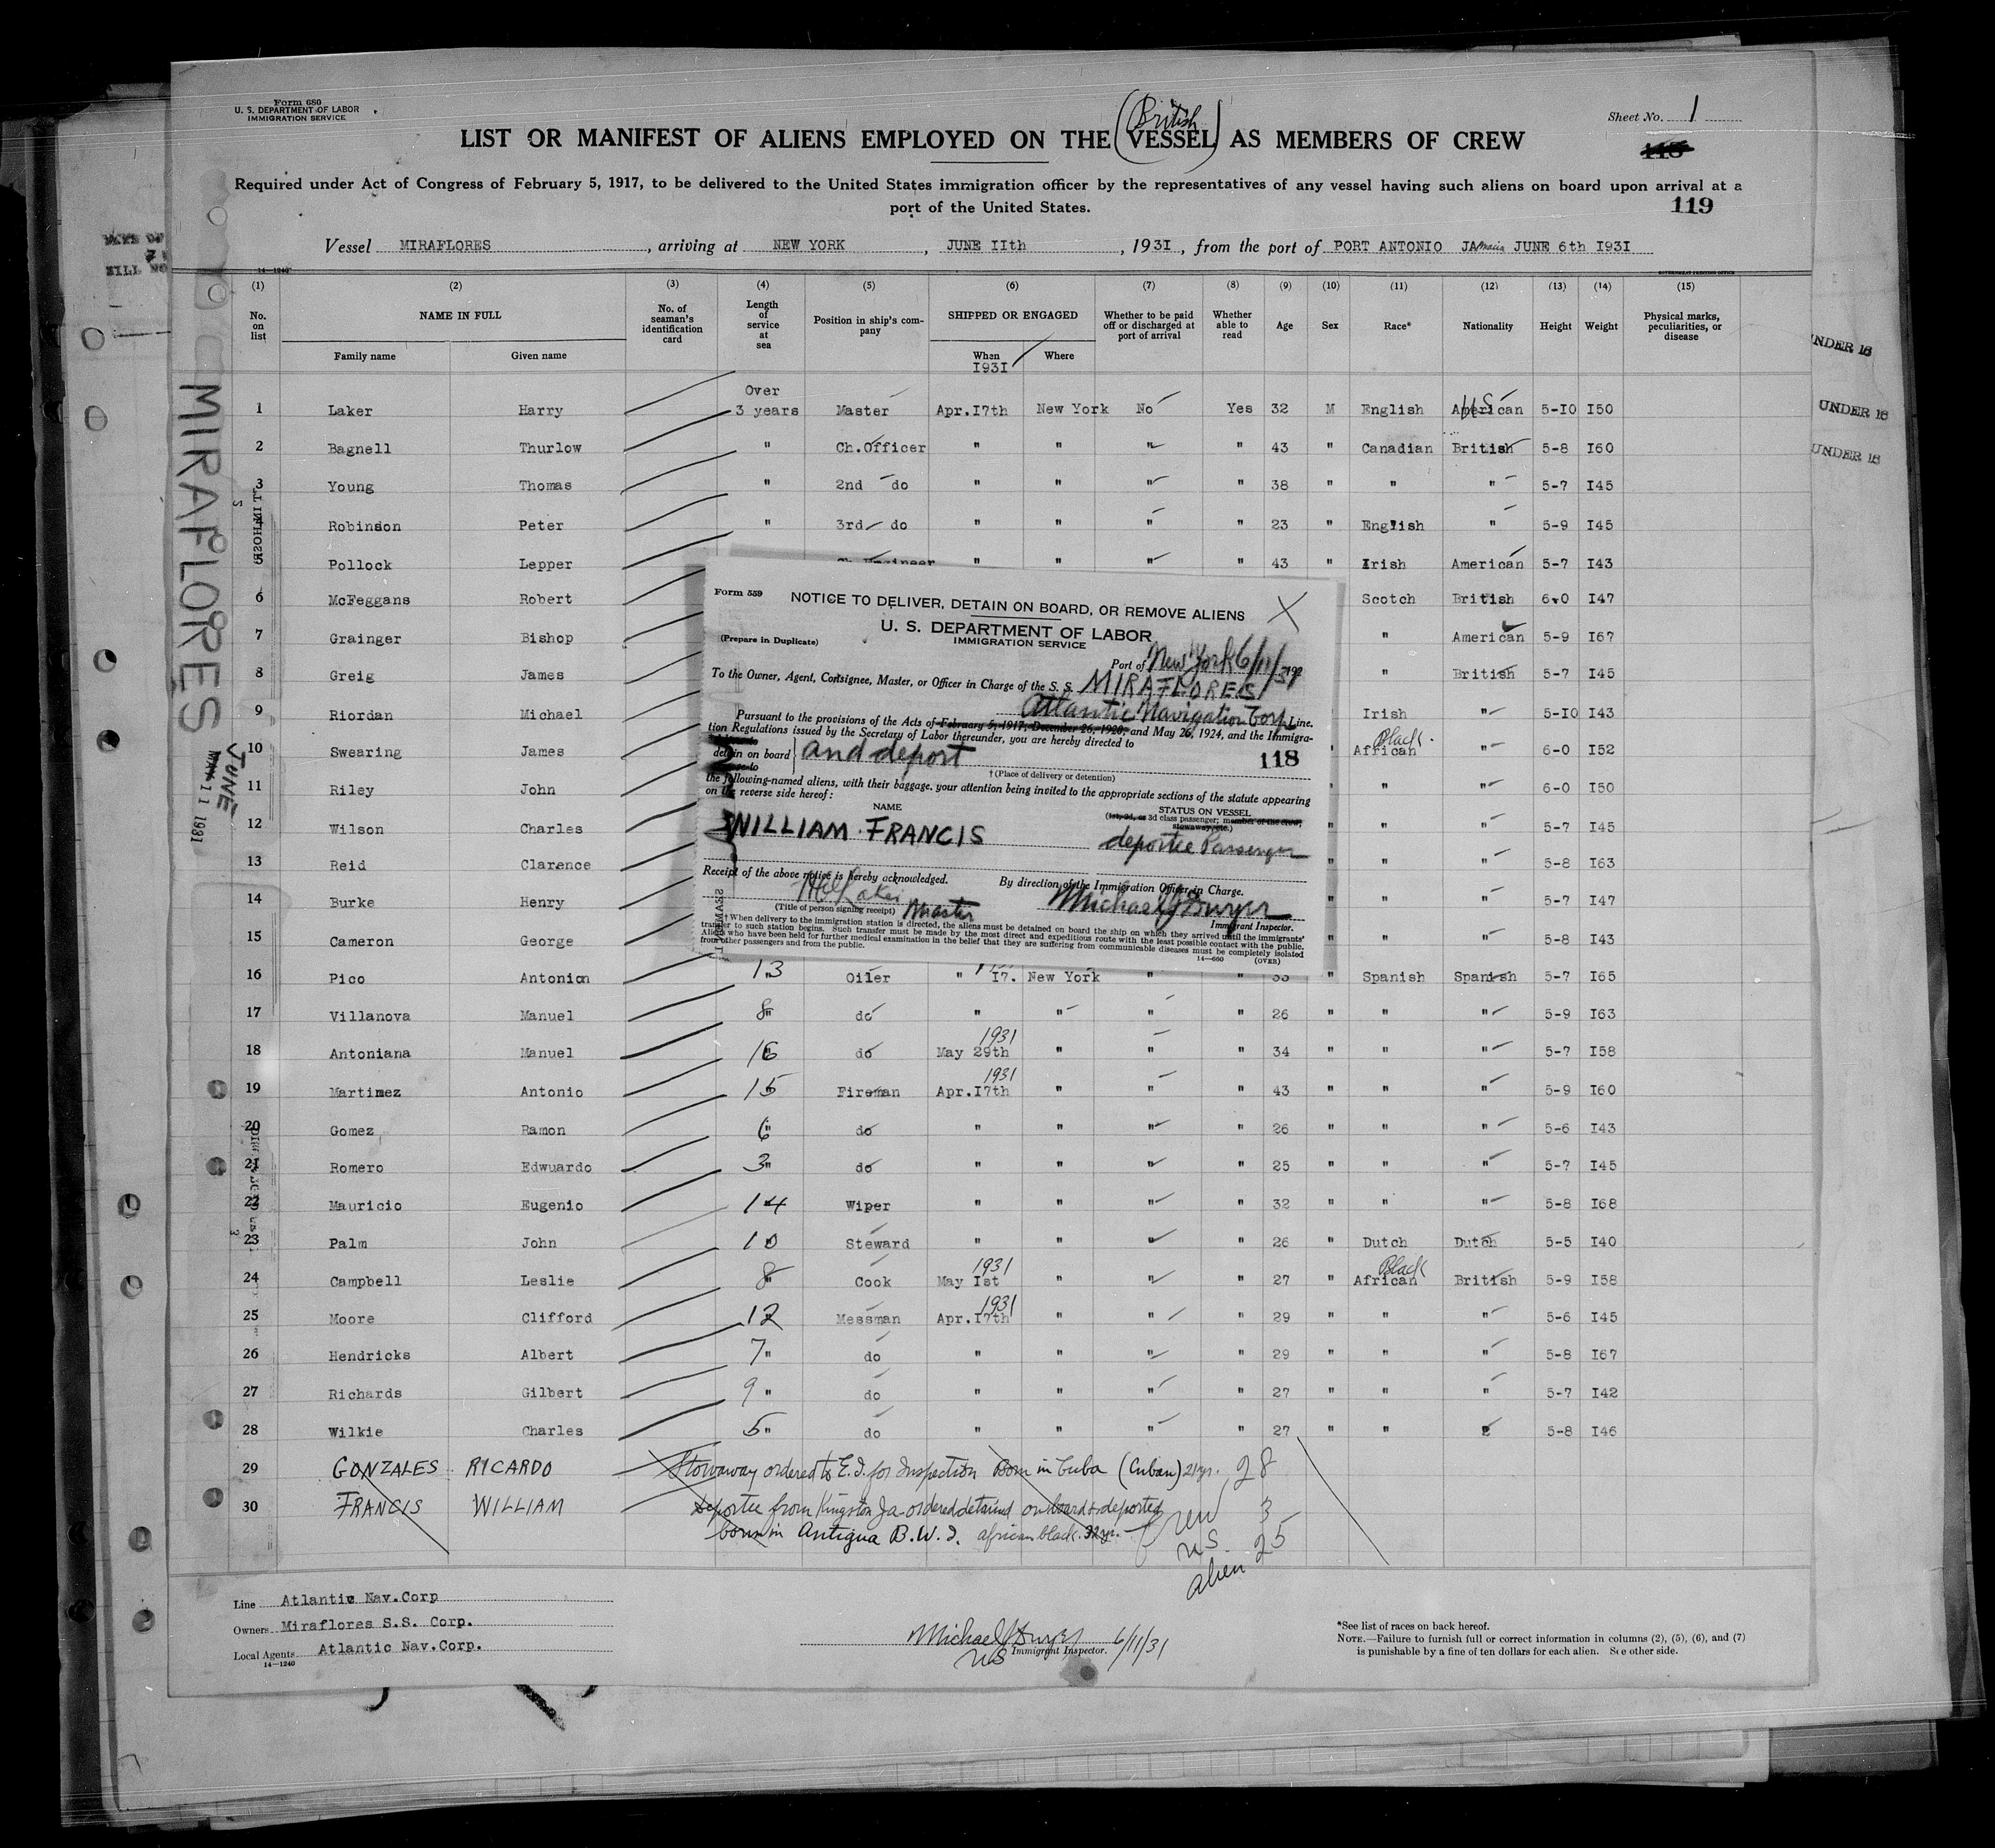 Form 680
U. S. DEPARTMENT OF LABOR
IMMIGRATION SERVICE
Sheet No. 1
(British)
LIST OR MANIFEST OF ALIENS EMPLOYED ON THE VESSEL AS MEMBERS OF CREW
118
Required under Act of Congress of February 5, 1917, to be delivered to the United States immigration officer by the representatives of any vessel having such aliens on board upon arrival at a
port of the United States.
119
Vessel MIRAFLORES, arriving at NEW YORK, JUNE IIth, 193I, from the port of PORT ANTONIO JAmaica JUNE 6th I93I
14-1240
GOVERNMENT PRINTING OFFICE
(1) (2) (3) (4) (5) (6) (7) (8) (9) (10) (11) (12) (13) (14) (15)
No. on list NAME IN FULL No. of seaman's identification card Length of service at sea Position in ship's company SHIPPED OR ENGAGED Whether to be paid off or discharged at port of arrival Whether able to read Age Sex Race* Nationality Height Weight Physical marks, peculiarities, or disease
Family name Given name When Where
I93I
Over
1 Laker Harry 3 years Master Apr.I7th New York No Yes 32 M English American US 5-IO I50
2 Bagnell Thurlow " Ch.Officer " " " " 43 " Canadian British 5-8 I60
3 Young Thomas " 2nd do " " " " 38 " " " 5-7 I45
4 Robinson Peter " 3rd do " " " " 23 " English " 5-9 I45
5 Pollock Lepper Ch.Engineer " " " " 43 " Irish American 5-7 I43
6 McFeggans Robert Scotch British 6-0 I47
7 Grainger Bishop " American 5-9 I67
8 Greig James " British 5-7 I45
9 Riordan Michael Irish " 5-IO I43
10 Swearing James " African Black " 6-0 I52
11 Riley John " " 6-0 I50
12 Wilson Charles " " " 5-7 I45
13 Reid Clarence " " " 5-8 I63
14 Burke Henry " " " 5-7 I47
15 Cameron George " " " 5-8 I43
16 Pico Antonion 13 Oiler " I7. New York " " 35 " Spanish Spanish 5-7 I65
17 Villanova Manuel 8 do " " " " 26 " " " 5-9 I63
1931
18 Antoniana Manuel 16 do May 29th " " " 34 " " " 5-7 I58
1931
19 Martinez Antonio 15 Fireman Apr.I7th " " " 43 " " " 5-9 I60
20 Gomez Ramon 6 do " " " " 26 " " " 5-6 I43
21 Romero Edwuardo 3 do " " " " 25 " " " 5-7 I45
22 Mauricio Eugenio 14 Wiper " " " " 32 " " " 5-8 I68
23 Palm John 10 Steward " " " " 26 " Dutch Dutch 5-5 I40
1931 Black
24 Campbell Leslie 8 Cook May Ist " " " 27 " African British 5-9 I58
1931
25 Moore Clifford 12 Messman Apr.I7th " " " 29 " " " 5-6 I45
26 Hendricks Albert 7 " do " " " " 29 " " " 5-8 I67
27 Richards Gilbert 9 " do " " " " 27 " " " 5-7 I42
28 Wilkie Charles 5 " do " " " " 27 " " " 5-8 I46
29 GONZALES RICARDO Stowaway ordered to E.I. for Inspection Born in Cuba (Cuban) 21yr. 28
30 FRANCIS WILLIAM Deportee from Kingston Ja ordered detained on board & deported
born in Antigua B.W.I. african black. 32yr.
crew 3
US. 25
alien
Form 559
NOTICE TO DELIVER, DETAIN ON BOARD, OR REMOVE ALIENS
X
U. S. DEPARTMENT OF LABOR
(Prepare in Duplicate) IMMIGRATION SERVICE
Port of New York 6/11/31, 192
To the Owner, Agent, Consignee, Master, or Officer in Charge of the S. S. MIRAFLORES
Atlantic Navigation Corp Line.
Pursuant to the provisions of the Acts of February 5, 1917, December 26, 1920, and May 26, 1924, and the Immigra-
tion Regulations issued by the Secretary of Labor thereunder, you are hereby directed to
detain on board } and deport 118
† (Place of delivery or detention)
the following-named aliens, with their baggage, your attention being invited to the appropriate sections of the statute appearing
on the reverse side hereof:
NAME STATUS ON VESSEL
(1st, 2d, or 3d class passenger; member of the crew; stowaway, etc.)
WILLIAM FRANCIS deportee Passenger
Receipt of the above notice is hereby acknowledged. By direction of the Immigration Officer in Charge.
H Laker Master Michael J Dwyer
(Title of person signing receipt) Immigrant Inspector.
† When delivery to the immigration station is directed, the aliens must be detained on board the ship on which they arrived until the immigrants'
transfer to such station begins. Such transfer must be made by the most direct and expeditious route with the least possible contact with the public.
Aliens who have been held for further medical examination in the belief that they are suffering from communicable diseases must be completely isolated
from other passengers and from the public.
14-660 (OVER)
MIRAFLORES
JUNE
11 1931
UNDER 16
UNDER 16
UNDER 16
Line Atlantic Nav.Corp
Owners Miraflores S.S. Corp.
Local Agents Atlantic Nav.Corp.
14-1240
Michael J Dwyer 6/11/31
US Immigrant Inspector.
*See list of races on back hereof.
NOTE.—Failure to furnish full or correct information in columns (2), (5), (6), and (7)
is punishable by a fine of ten dollars for each alien. See other side.